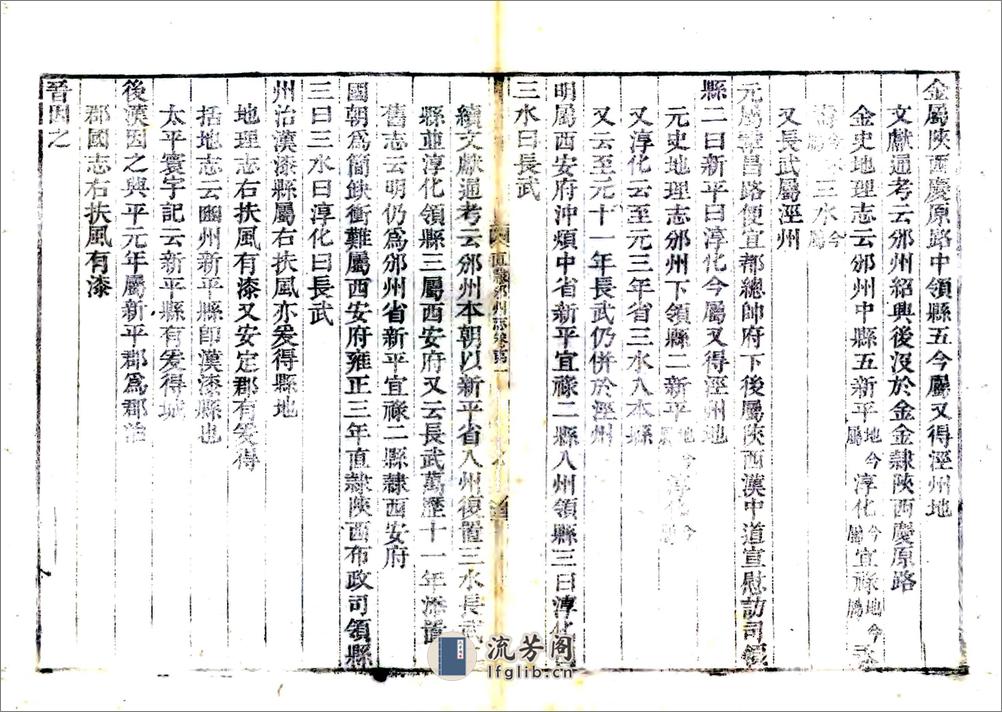 金屬陝西慶原路中領縣五今屬又得涇州地
文獻通考云邠州紹興後沒於金金隸陝西慶原路
金史地理志云邠州中縣五新平地今屬淳化今屬宜祿地今屬
三水今屬
又長武屬涇州
元屬鞏昌路便宜都總帥府下後屬陝西漢中道宣慰訪司領
縣二曰新平曰淳化今屬又得涇州地
元史地理志邠州下領縣二新平地今淳化今
又淳化云至元三年省三水入本縣
又云至元十一年長武仍併於涇州
明屬西安府沖煩中省新平宜祿二縣入州領縣三曰淳化
三水曰長武
直隸邠州志卷第一
續文獻通考云邠州本朝以新平省入州復置三水長武
縣並淳化領縣三屬西安府又云長武萬歷十一年添置
舊志云明仍為邠州省新平宜祿二縣隸西安府
國朝為簡缺衝難屬西安府雍正三年直隸陝西布政司領縣
三曰三水曰淳化曰長武
州治漢漆縣屬右扶風亦爰得縣地
地理志右扶風有漆又安定郡有爰得
括地志云豳州新平縣即漢漆縣也
太平寰宇記云新平縣有爰得城
後漢因之興平元年屬新平郡為郡治
郡國志右扶風有漆
晉因之
流芳阁
lfglib.cn